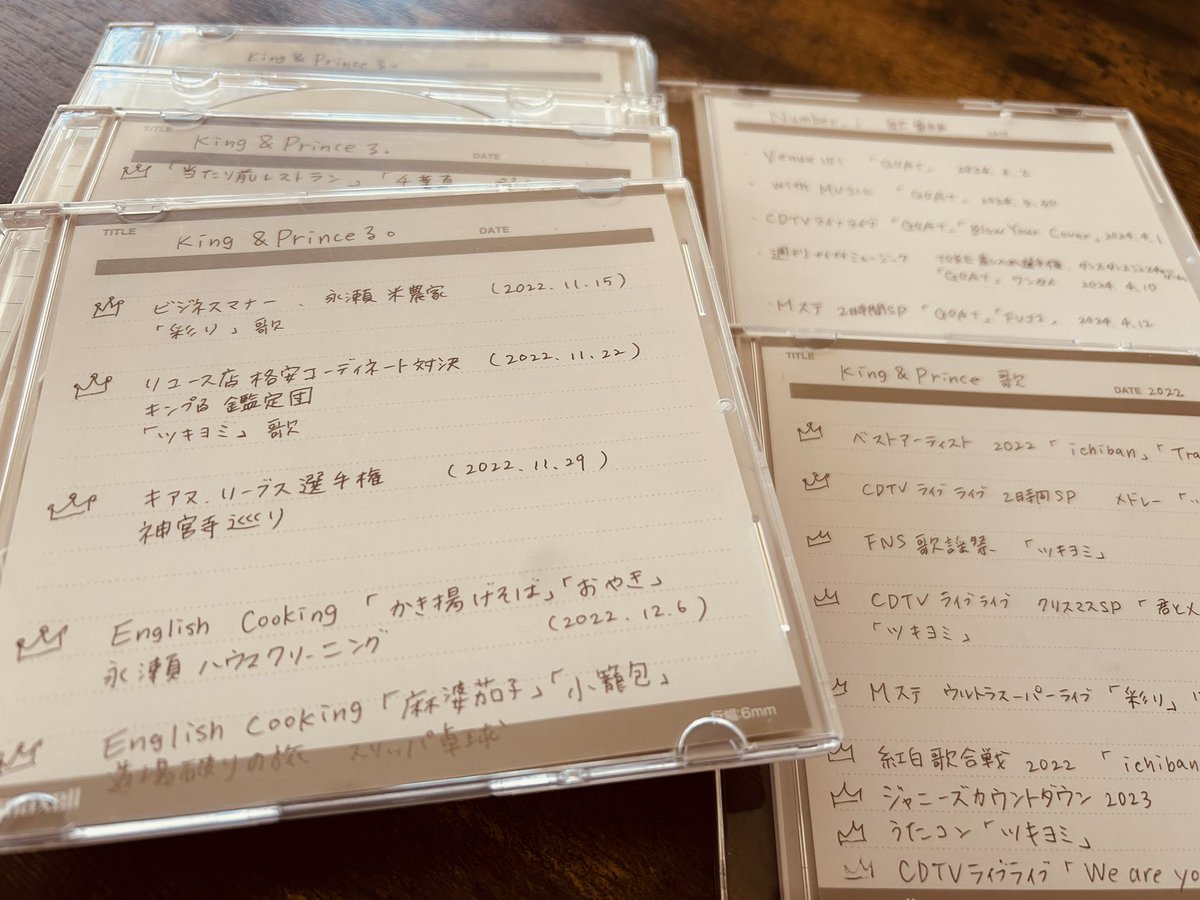 King & Prince る。
King & Prince る。
TITLE
DATE
「当たり前レストラン」「千葉真
TITLE
King & Prince る。
DATE
ビジネスマナー 、永瀬 米農家 (2022.11.15)
「彩り」歌
リユース店 格安コーディネート対決 (2022.11.22)
キンプる 鑑定団
「ツキヨミ」歌
キアヌ.リーブス選手権 (2022.11.29)
神宮寺巡り
English Cooking 「かき揚げそば」「おやき」
永瀬 ハウスクリーニング (2022.12.6)
English Cooking「麻婆茄子」「小籠包」
の旅 スリッパ卓球
行幅:6mm
maxell
TITLE
Number_i 歌
DATE
・Venue101 「GOAT」 2024.2.2
・with MUSIC 「GOAT」 2024.
・CDTVライブライブ 「GOAT」「Blow Your Cover」2024.4.1
「GOAT」 2024.4.10
・Mステ 2時間SP 「GOAT」「FUJI」 2024.4.12
TITLE
King & Prince 歌
DATE 2022
ベストアーティスト 2022「ichiban」「Tra
CDTV ライブライブ 2時間SP メドレー「ツ
FNS 歌謡祭 「ツキヨミ」
CDTV ライブライブ クリスマスSP「君とメ
「ツキヨミ」
Mステ ウルトラスーパーライブ「彩り」
紅白歌合戦 2022 「ichiban
ジャニーズカウントダウン 2023
うたコン「ツキヨミ」
CDTVライブライブ「We are yo